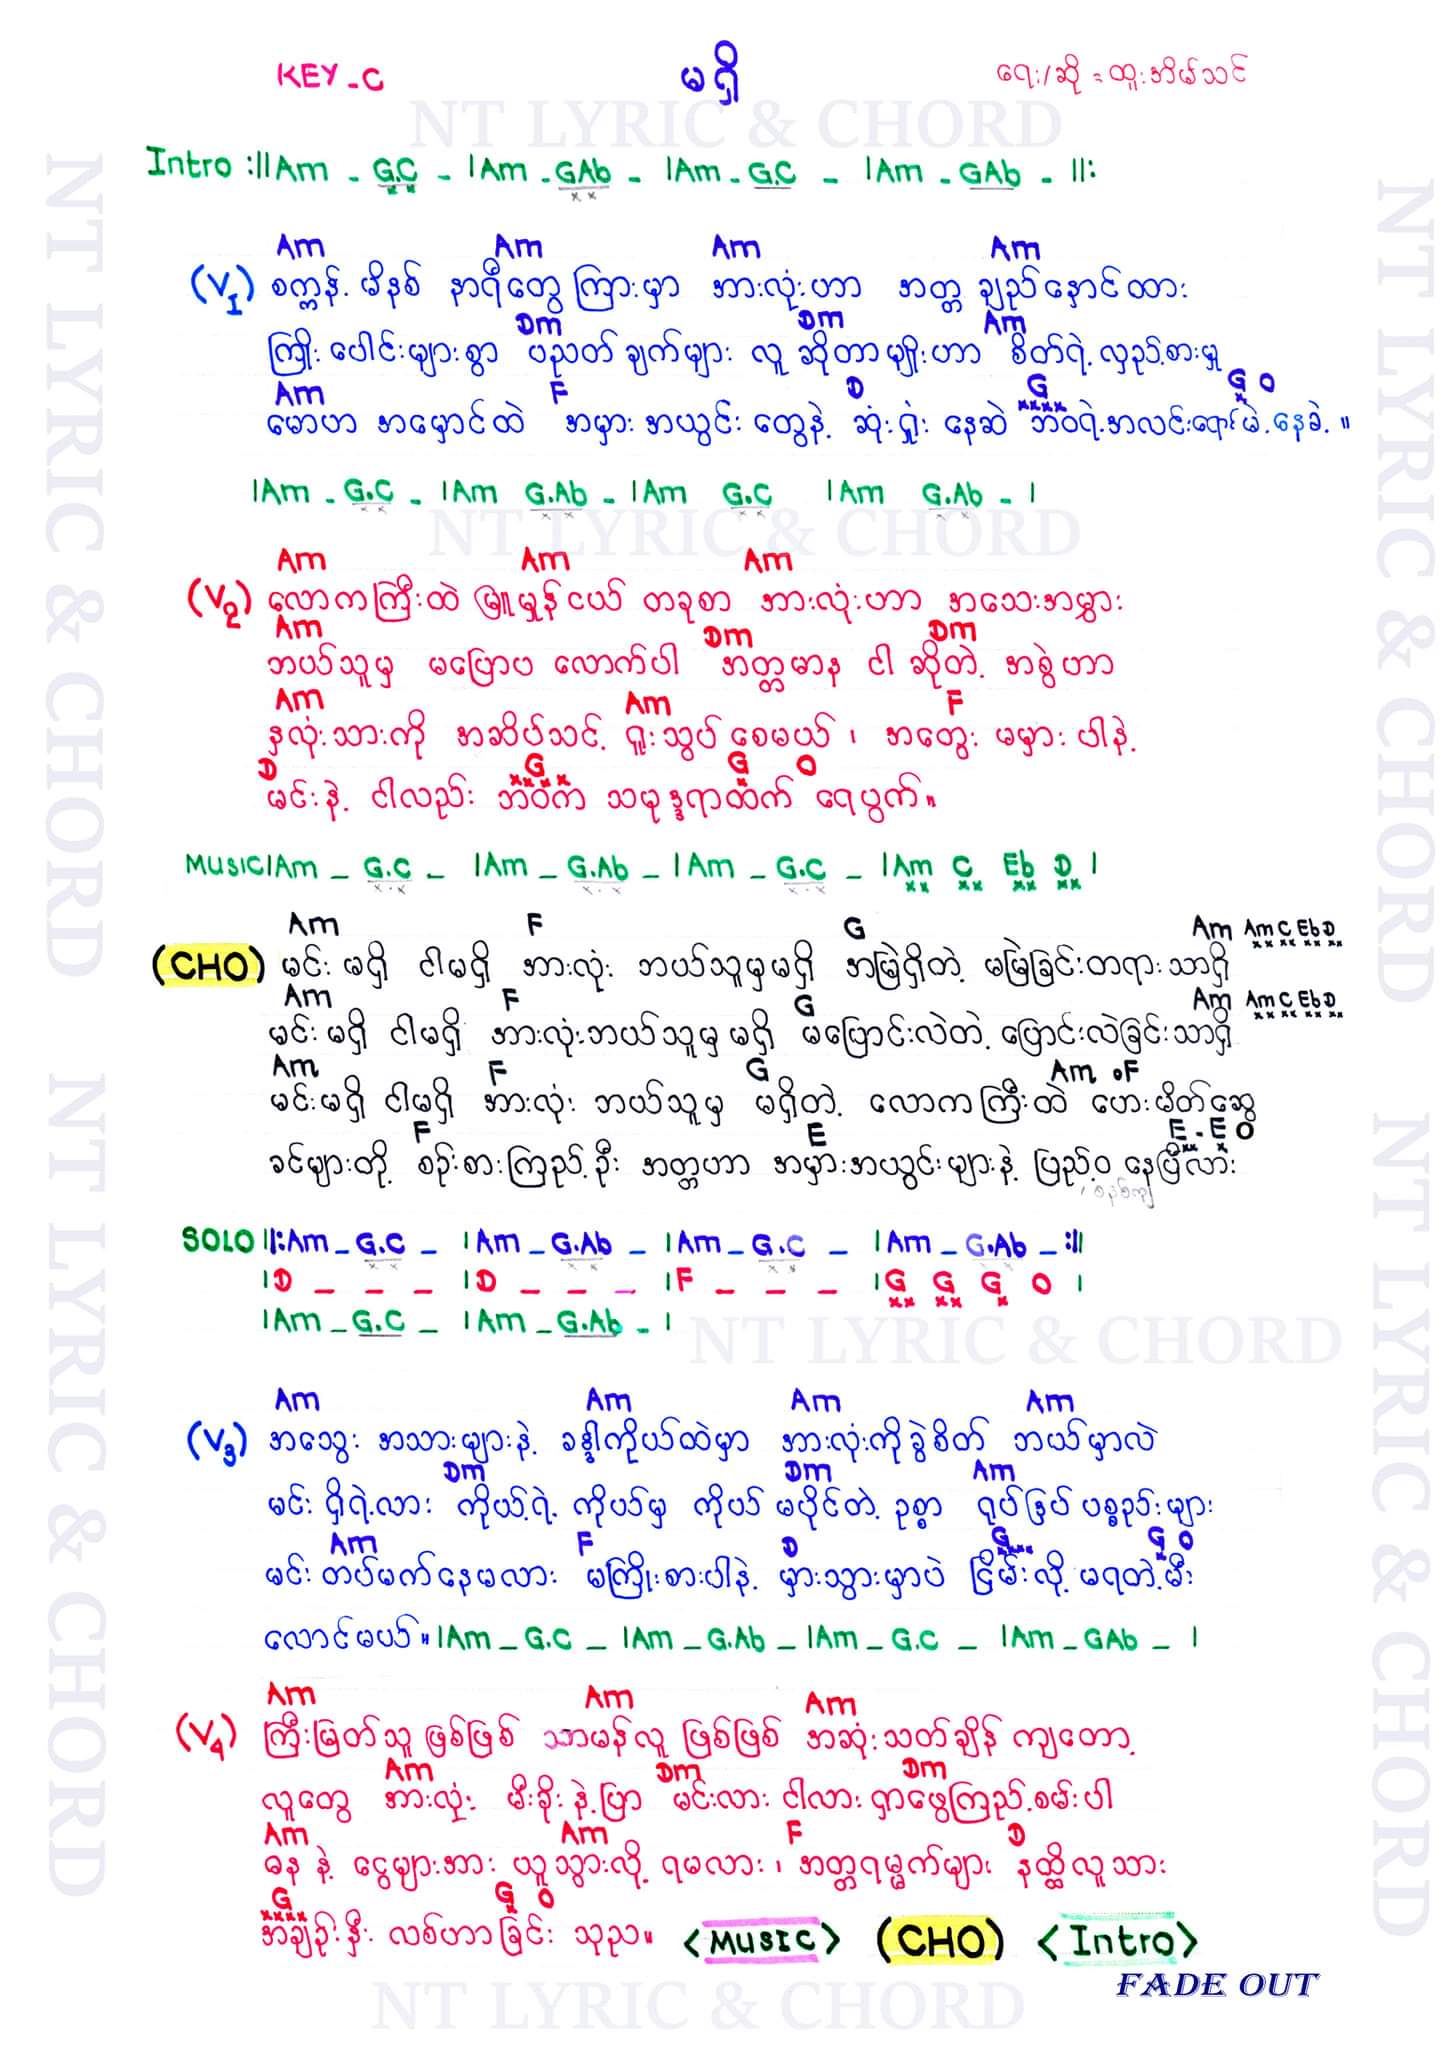 KEY - C
မရှိ
ရေး/ဆို = ထူးအိမ်သင်
NT LYRIC & CHORD
Intro :||Am - G.C - |Am - GAb - |Am - G.C - |Am - GAb - ||:
Am Am Am Am
(V1) စက္ကန့် မိနစ် နာရီတွေ ကြားမှာ အားလုံးဟာ အတ္တ ချည်နှောင်ထား
Dm Dm Am
ကြိုးပေါင်းများစွာ ပညတ်ချက်များ လူဆိုတာမျိုးဟာ စိတ်ရဲ့ လှည့်စားမှု
Am F D G G O
မောဟ အမှောင်ထဲ အမှား အယွင်း တွေနဲ့ ဆုံးရှုံး နေဆဲ ဘဝရဲ့အလင်းရောင်မဲ့နေခဲ့။
|Am - G.C - |Am G.Ab - |Am G.C |Am G.Ab - |
NT LYRIC & CHORD
Am Am Am
(V2) လောကကြီးထဲ မြူမှုန်ငယ် တခုစာ အားလုံးဟာ အသေးအမွှား
Am Dm Dm
ဘယ်သူမှ မပြောပ လောက်ပါ အတ္တမာန ငါ ဆိုတဲ့ အစွဲဟာ
Am Am F
နှလုံးသားကို အဆိပ်သင့် ရူးသွပ် စေမယ်၊ အတွေး မမှားပါနဲ့
D G G O
မင်းနဲ့ ငါလည်း ဘဝက သမုဒ္ဒရာထက် ရေပွက်။
MUSIC|Am - G.C - |Am - G.Ab - |Am - G.C - |Am C Eb D |
Am F G Am Am C Eb D
(CHO) မင်း မရှိ ငါမရှိ အားလုံး ဘယ်သူမှမရှိ အမြဲရှိတဲ့ မမြဲခြင်းတရားသာရှိ
Am F G Am Am C Eb D
မင်းမရှိ ငါမရှိ အားလုံးဘယ်သူမှ မရှိ မပြောင်းလဲတဲ့ ပြောင်းလဲခြင်းသာရှိ
Am F G Am oF
မင်းမရှိ ငါမရှိ အားလုံး ဘယ်သူမှ မရှိတဲ့ လောကကြီးထဲ ဟေးမိတ်ဆွေ
F E E - E O
ခင်များတို့ စဉ်းစားကြည့်ဦး အတ္တဟာ အမှားအယွင်းများနဲ့ ပြည့်ဝ နေပြီလား
SOLO ||:Am - G.C - |Am - G.Ab - |Am - G.C - |Am - G.Ab - :||
|D - - - |D - - - |F - - - |G G G O |
|Am - G.C - |Am - G.Ab - |
NT LYRIC & CHORD
Am Am Am Am
(V3) အသွေး အသားများနဲ့ ခန္ဓါကိုယ်ထဲမှာ အားလုံးကိုခွဲစိတ် ဘယ်မှာလဲ
Dm Dm Am
မင်း ရှိရဲ့လား ကိုယ့်ရဲ့ ကိုယ်မှ ကိုယ် မပိုင်တဲ့ ဥစ္စာ ရုပ်ဒြပ် ပစ္စည်းများ
Am F D G G O
မင်း တပ်မက်နေမလား မကြိုးစားပါနဲ့ မှားသွားမှာပဲ ငြိမ်းလို့ မရတဲ့မီး
လောင်မယ်။|Am - G.C - |Am - G.Ab - |Am - G.C - |Am - GAb - |
Am Am Am
(V4) ကြီးမြတ်သူ ဖြစ်ဖြစ် သာမန်လူ ဖြစ်ဖြစ် အဆုံးသတ်ချိန် ကျတော့
Am Dm Dm
လူတွေ အားလုံး မီးခိုးနဲ့ပြာ မင်းလား ငါလား ရှာဖွေကြည့်စမ်းပါ
Am Am F D
ဓန နဲ့ ငွေများအား ယူသွားလို့ ရမလား၊ အတ္တရမ္မက်များ နတ္ထိလူသား
G G O
အချည်းနှီး လစ်ဟာခြင်း သုည။ <MUSIC> (CHO) <Intro>
FADE OUT
NT LYRIC & CHORD
NT LYRIC & CHORD
NT LYRIC & CHORD
NT LYRIC & CHORD
NT LYRIC & CHORD